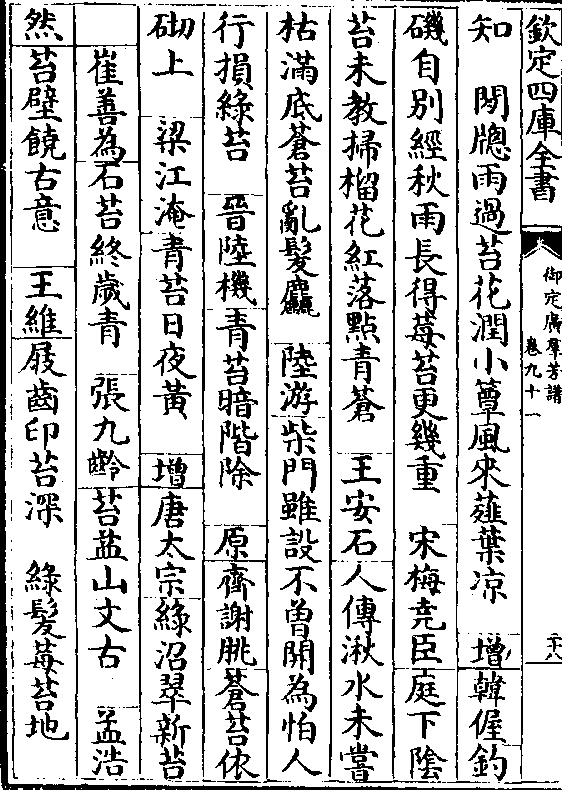 欽定四庫全書
御定廣羣芳譜
卷九十一
二十八
知　閒牕雨過苔花潤小簟風來薤葉凉　增韓偓釣
磯自別經秋雨長得莓苔更幾重　宋梅尭臣庭下隂
苔未教掃榴花紅落點青蒼　王安石人傳湫水未嘗
枯滿底蒼苔亂髮麤　陸游柴門雖設不曽開為怕人
行損綠苔　晉陸機青苔暗階除　原齊謝朓蒼苔依
砌上　梁江淹青苔日夜黄　增唐太宗綠沼翠新苔
崔善為石苔終歲青　張九齡苔益山文古　孟浩
然苔壁饒古意　王維屐齒印苔深　綠髮莓苔地